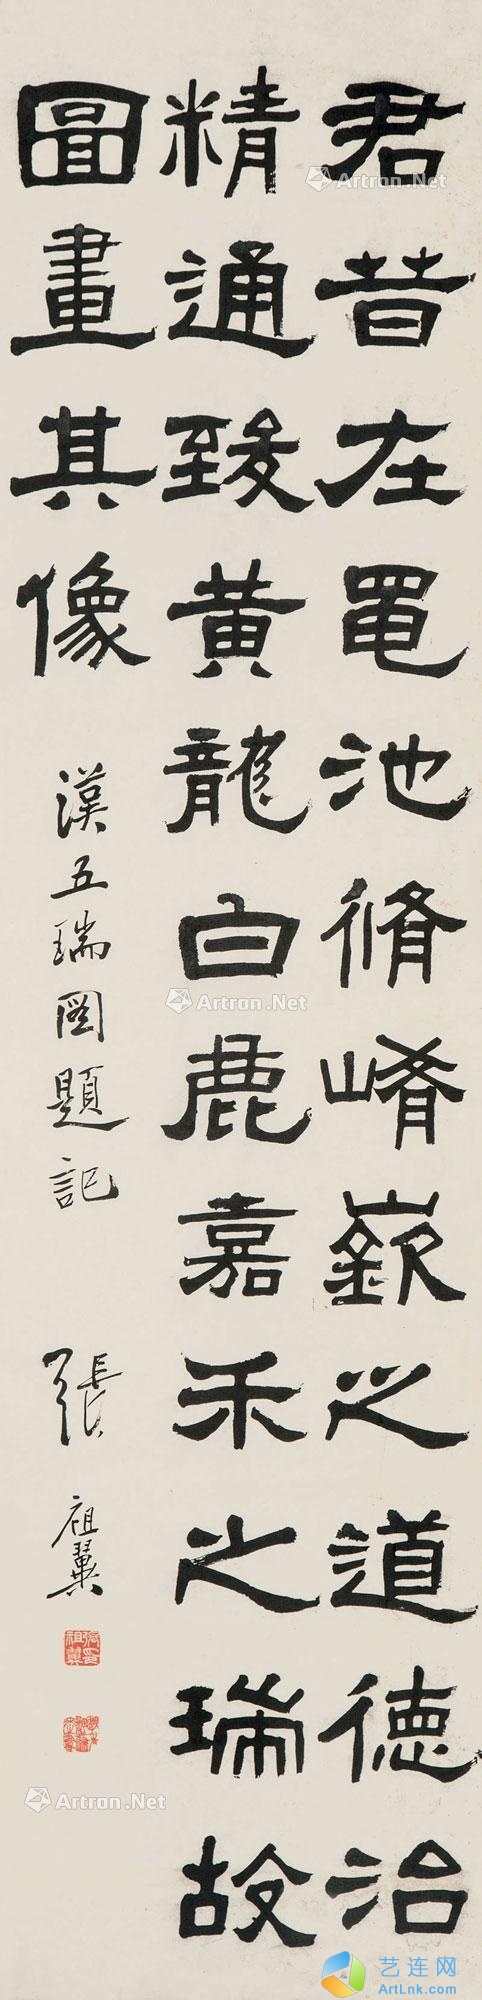 君昔在黽池脩崤嶔之道德治
精通致黄龍白鹿嘉禾之瑞故
圖畫其像
漢五瑞圖題記
張祖翼
Artron.Net
Artron.Net
Artron.Net
艺连网
ArtLnk.com